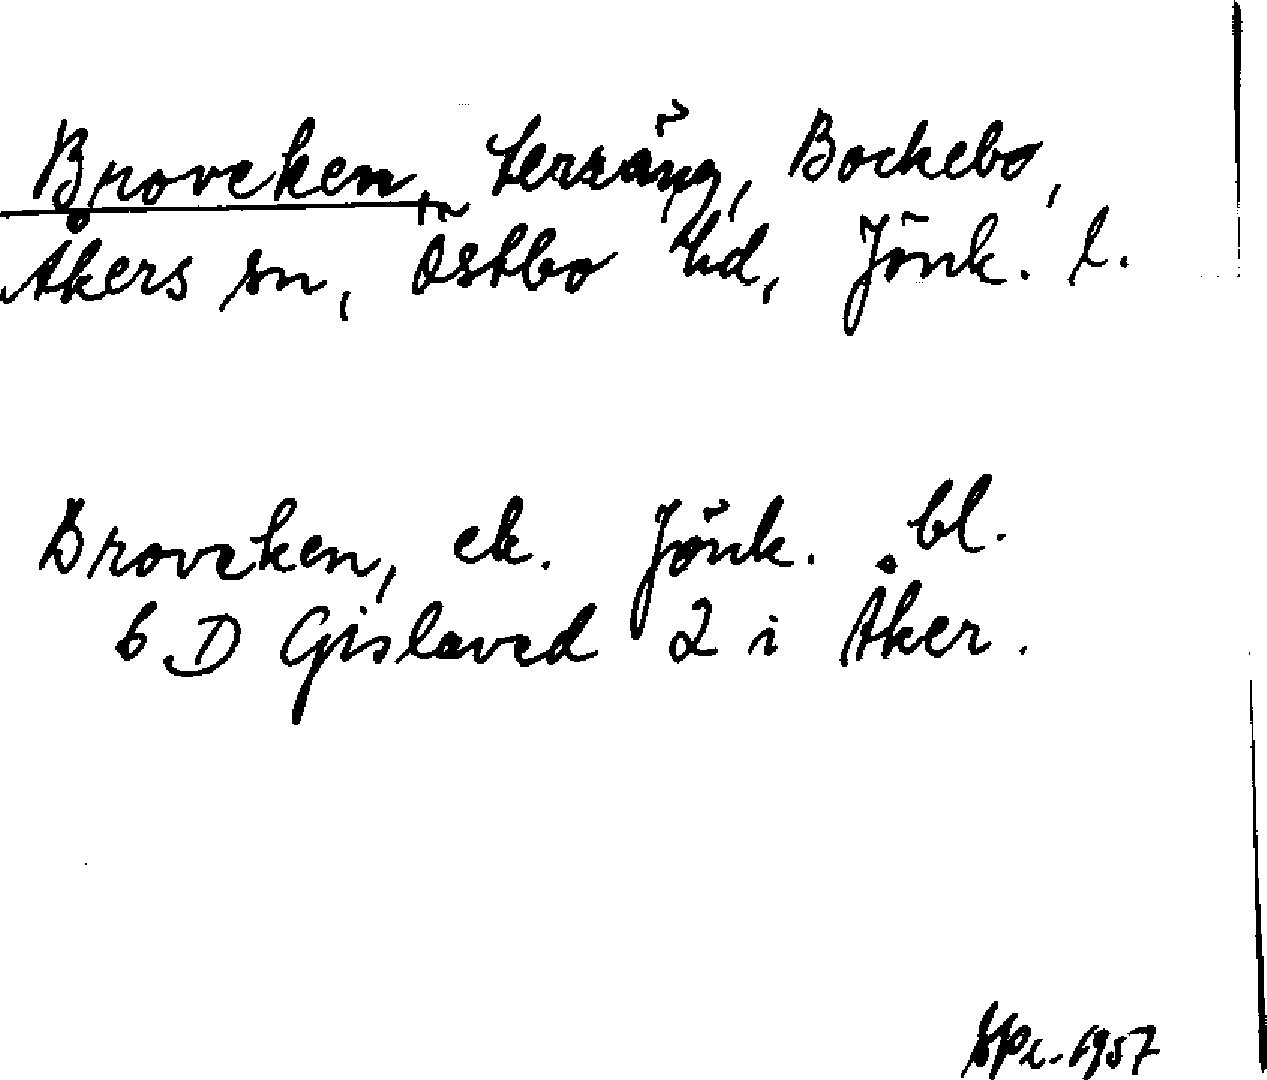 Broveken, Lersäng, Bockebo,
Åkers sn, Östbo hd, Jönk. l.
Broveken, ek. Jönk. bl.
6 D Gislaved 2 i Åker.
1957